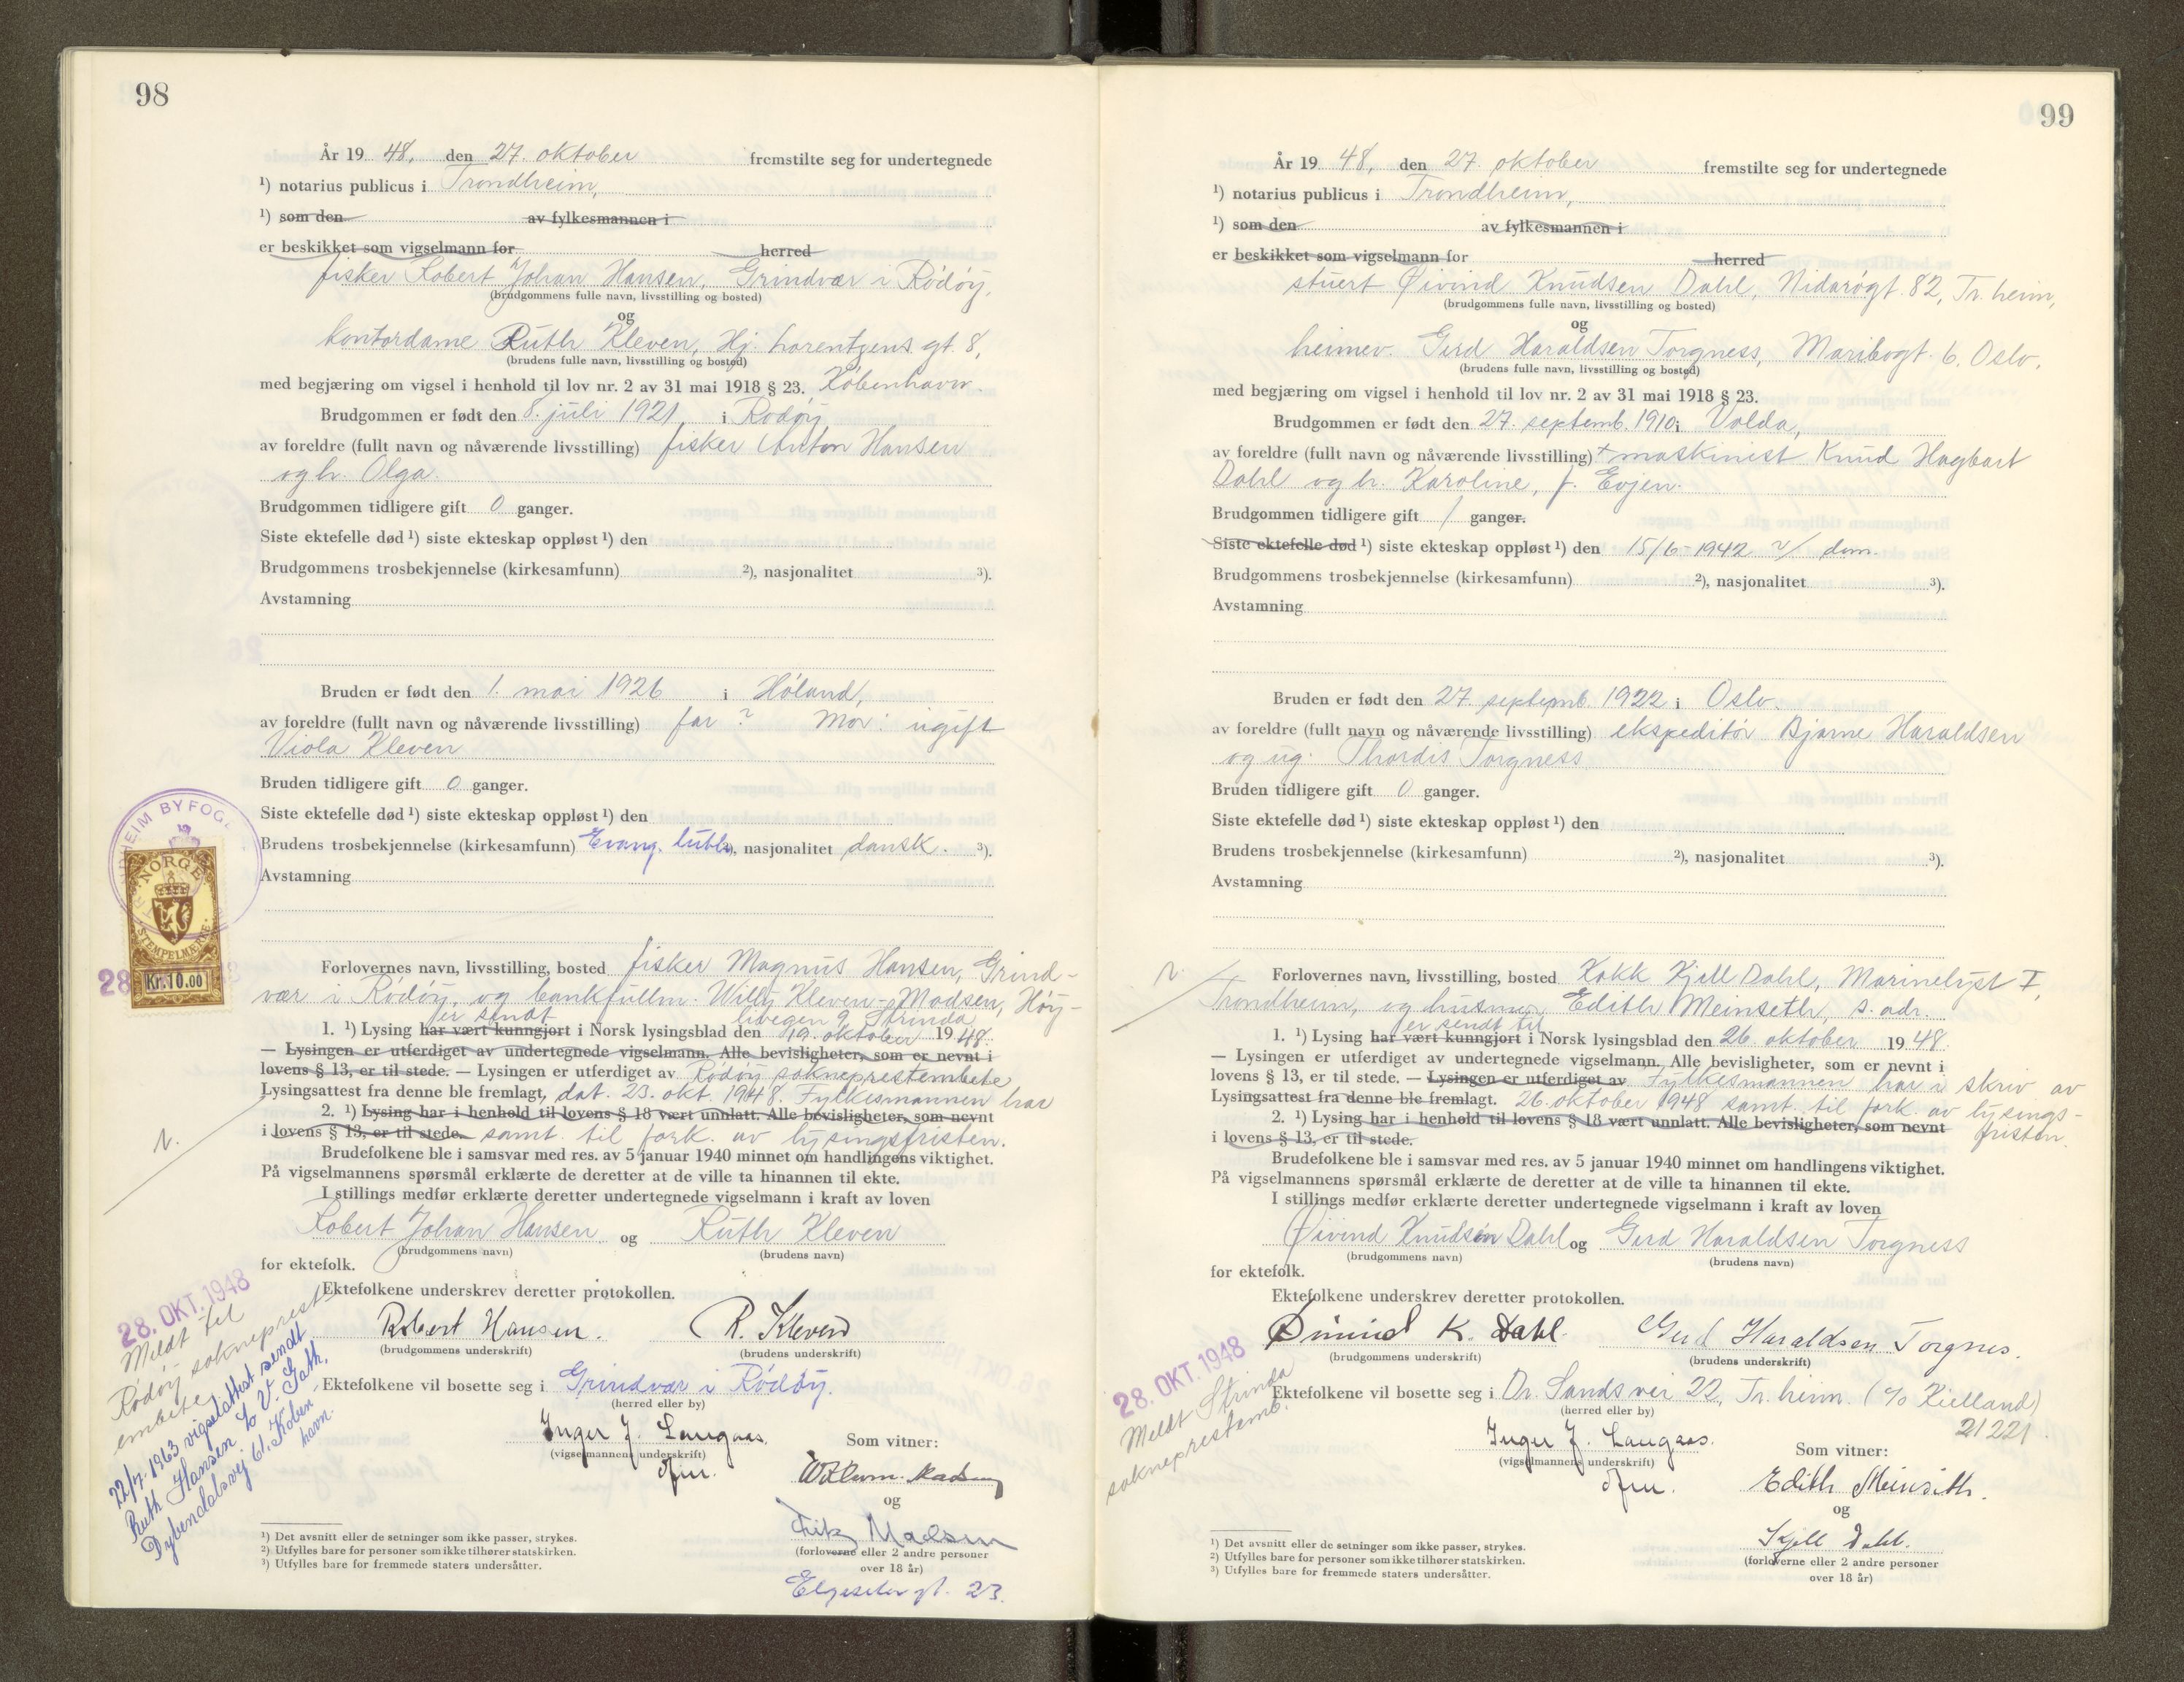 98
År 19 48, den 27. oktober fremstilte seg for undertegnede
¹) notarius publicus i Trondheim,
¹) som den av fylkesmannen i
er beskikket som vigselmann for herred
fisker Robert Johan Hansen, Grindvær i Rødøy,
(brudgommens fulle navn, livsstilling og bosted)
og
kontordame Ruth Kleven, Hj. Lorentzens gt. 8,
(brudens fulle navn, livsstilling og bosted)
med begjæring om vigsel i henhold til lov nr. 2 av 31 mai 1918 § 23. København.
Brudgommen er født den 8. juli 1921 i Rødøy
av foreldre (fullt navn og nåværende livsstilling) fisker Anton Hansen
og h. Olga.
Brudgommen tidligere gift 0 ganger.
Siste ektefelle død ¹) siste ekteskap oppløst ¹) den
Brudgommens trosbekjennelse (kirkesamfunn) ²), nasjonalitet ³).
Avstamning
Bruden er født den 1. mai 1926 i Høland,
av foreldre (fullt navn og nåværende livsstilling) far ? Mor: ugift
Viola Kleven
Bruden tidligere gift 0 ganger.
Siste ektefelle død ¹) siste ekteskap oppløst ¹) den
Brudens trosbekjennelse (kirkesamfunn) Evang. luth. ²), nasjonalitet dansk. ³).
Avstamning
Forlovernes navn, livsstilling, bosted fisker Magnus Hansen, Grind-
vær i Rødøy, og bankfullm. Willy Kleven-Madsen, Høy-
er sendt livegen 9 Strinda
1. ¹) Lysing har vært kunngjort i Norsk lysingsblad den 19. oktober 19 48.
— Lysingen er utferdiget av undertegnede vigselmann. Alle bevisligheter, som er nevnt i
lovens § 13, er til stede. — Lysingen er utferdiget av Rødøy sokneprestembete
Lysingsattest fra denne ble fremlagt, dat. 23. okt. 1948. Fylkesmannen har
2. ¹) Lysing har i henhold til lovens § 18 vært unnlatt. Alle bevisligheter, som nevnt
i lovens § 13, er til stede. samt. til fork. av lysingsfristen.
Brudefolkene ble i samsvar med res. av 5 januar 1940 minnet om handlingens viktighet.
På vigselmannens spørsmål erklærte de deretter at de ville ta hinannen til ekte.
I stillings medfør erklærte deretter undertegnede vigselmann i kraft av loven
Robert Johan Hansen og Ruth Kleven
(brudgommens navn) (brudens navn)
for ektefolk.
Ektefolkene underskrev deretter protokollen.
Robert Hansen. R. Kleven
(brudgommens underskrift) (brudens underskrift)
Ektefolkene vil bosette seg i Grindvær i Rødøy.
(herred eller by)
Inger J. Langaas.
(vigselmannens underskrift)
Som vitner:
og
Fritz Madsen
(forloverne eller 2 andre personer
over 18 år)
Elgeseter gt. 23.
¹) Det avsnitt eller de setninger som ikke passer, strykes.
²) Utfylles bare for personer som ikke tilhører statskirken.
³) Utfylles bare for fremmede staters undersåtter.
NORGE
STEMPELMERKE
Kr. 10.00
28
28. OKT. 1948
Meldt til
Rødøy sokneprest-
embete
22/7. 1963 vigselattest sendt
Ruth Hansen
Dybendalsvej 61. Køben-
havn.
99
År 19 48, den 27. oktober fremstilte seg for undertegnede
¹) notarius publicus i Trondheim,
¹) som den av fylkesmannen i
er beskikket som vigselmann for herred
stuert Øivind Knudsen Dahl, Nidarøgt. 82, Tr.heim,
(brudgommens fulle navn, livsstilling og bosted)
og
heimev. Gerd Haraldsen Torgness, Maribogt. 6, Oslo.
(brudens fulle navn, livsstilling og bosted)
med begjæring om vigsel i henhold til lov nr. 2 av 31 mai 1918 § 23.
Brudgommen er født den 27. septemb. 1910 i Volda,
av foreldre (fullt navn og nåværende livsstilling) + maskinist Knud Hagbart
Dahl og h. Karoline, f. Evjen.
Brudgommen tidligere gift 1 ganger.
Siste ektefelle død ¹) siste ekteskap oppløst ¹) den 15/6-1942 v/ dom.
Brudgommens trosbekjennelse (kirkesamfunn) ²), nasjonalitet ³).
Avstamning
Bruden er født den 27. septemb. 1922 i Oslo.
av foreldre (fullt navn og nåværende livsstilling) ekspeditør Bjarne Haraldsen
og ug. Thordis Torgness
Bruden tidligere gift 0 ganger.
Siste ektefelle død ¹) siste ekteskap oppløst ¹) den
Brudens trosbekjennelse (kirkesamfunn) ²), nasjonalitet ³).
Avstamning
Forlovernes navn, livsstilling, bosted Kokk Kjell Dahl, Marinelyst I,
Trondheim, og husmor Edith Meinseth, s. adr.
er sendt til
1. ¹) Lysing har vært kunngjort i Norsk lysingsblad den 26. oktober 19 48.
— Lysingen er utferdiget av undertegnede vigselmann. Alle bevisligheter, som er nevnt i
lovens § 13, er til stede. — Lysingen er utferdiget av Fylkesmannen har i skriv av
Lysingsattest fra denne ble fremlagt. 26. oktober 1948 samt. til fork. av lysings-
2. ¹) Lysing har i henhold til lovens § 18 vært unnlatt. Alle bevisligheter, som nevnt fristen.
i lovens § 13, er til stede.
Brudefolkene ble i samsvar med res. av 5 januar 1940 minnet om handlingens viktighet.
På vigselmannens spørsmål erklærte de deretter at de ville ta hinannen til ekte.
I stillings medfør erklærte deretter undertegnede vigselmann i kraft av loven
Øivind Knudsen Dahl og Gerd Haraldsen Torgness
(brudgommens navn) (brudens navn)
for ektefolk.
Ektefolkene underskrev deretter protokollen.
Øivind K. Dahl. Gerd Haraldsen Torgnes.
(brudgommens underskrift) (brudens underskrift)
Ektefolkene vil bosette seg i Dr. Sands vei 22, Tr.heim. (c/o Kielland)
(herred eller by) 21221
Inger J. Langaas.
(vigselmannens underskrift)
Som vitner:
Edith Meinseth.
og
Kjell Dahl.
(forloverne eller 2 andre personer
over 18 år)
¹) Det avsnitt eller de setninger som ikke passer, strykes.
²) Utfylles bare for personer som ikke tilhører statskirken.
³) Utfylles bare for fremmede staters undersåtter.
28. OKT. 1948
Meldt Strinda
sokneprestemb.